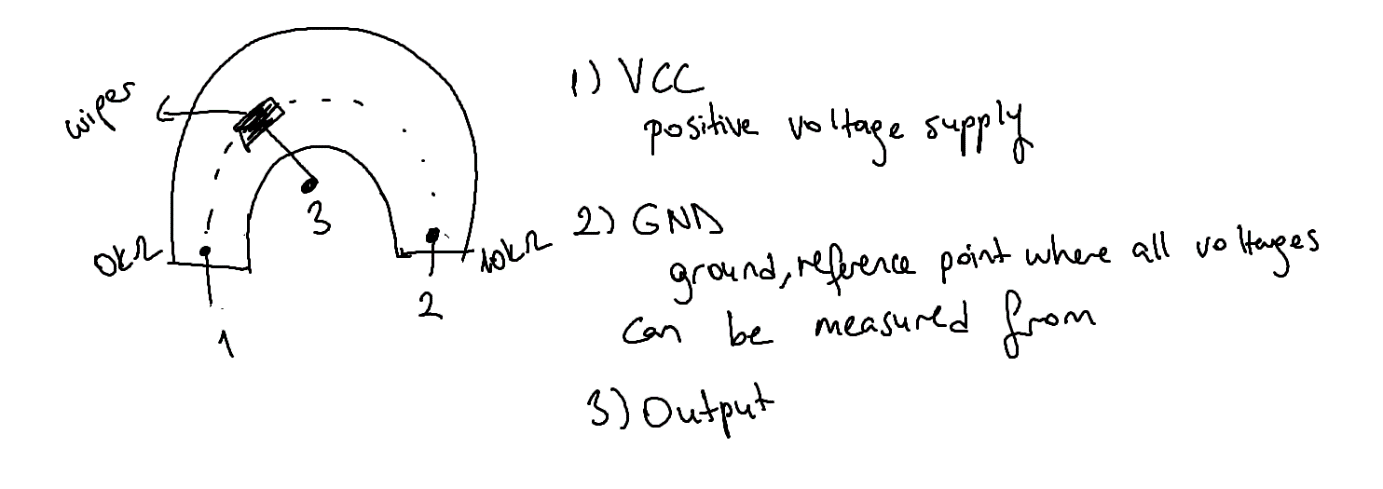 wiper
0kΩ
10kΩ
1
2
3
1) VCC
positive voltage supply
2) GND
ground, reference point where all voltages
can be measured from
3) Output